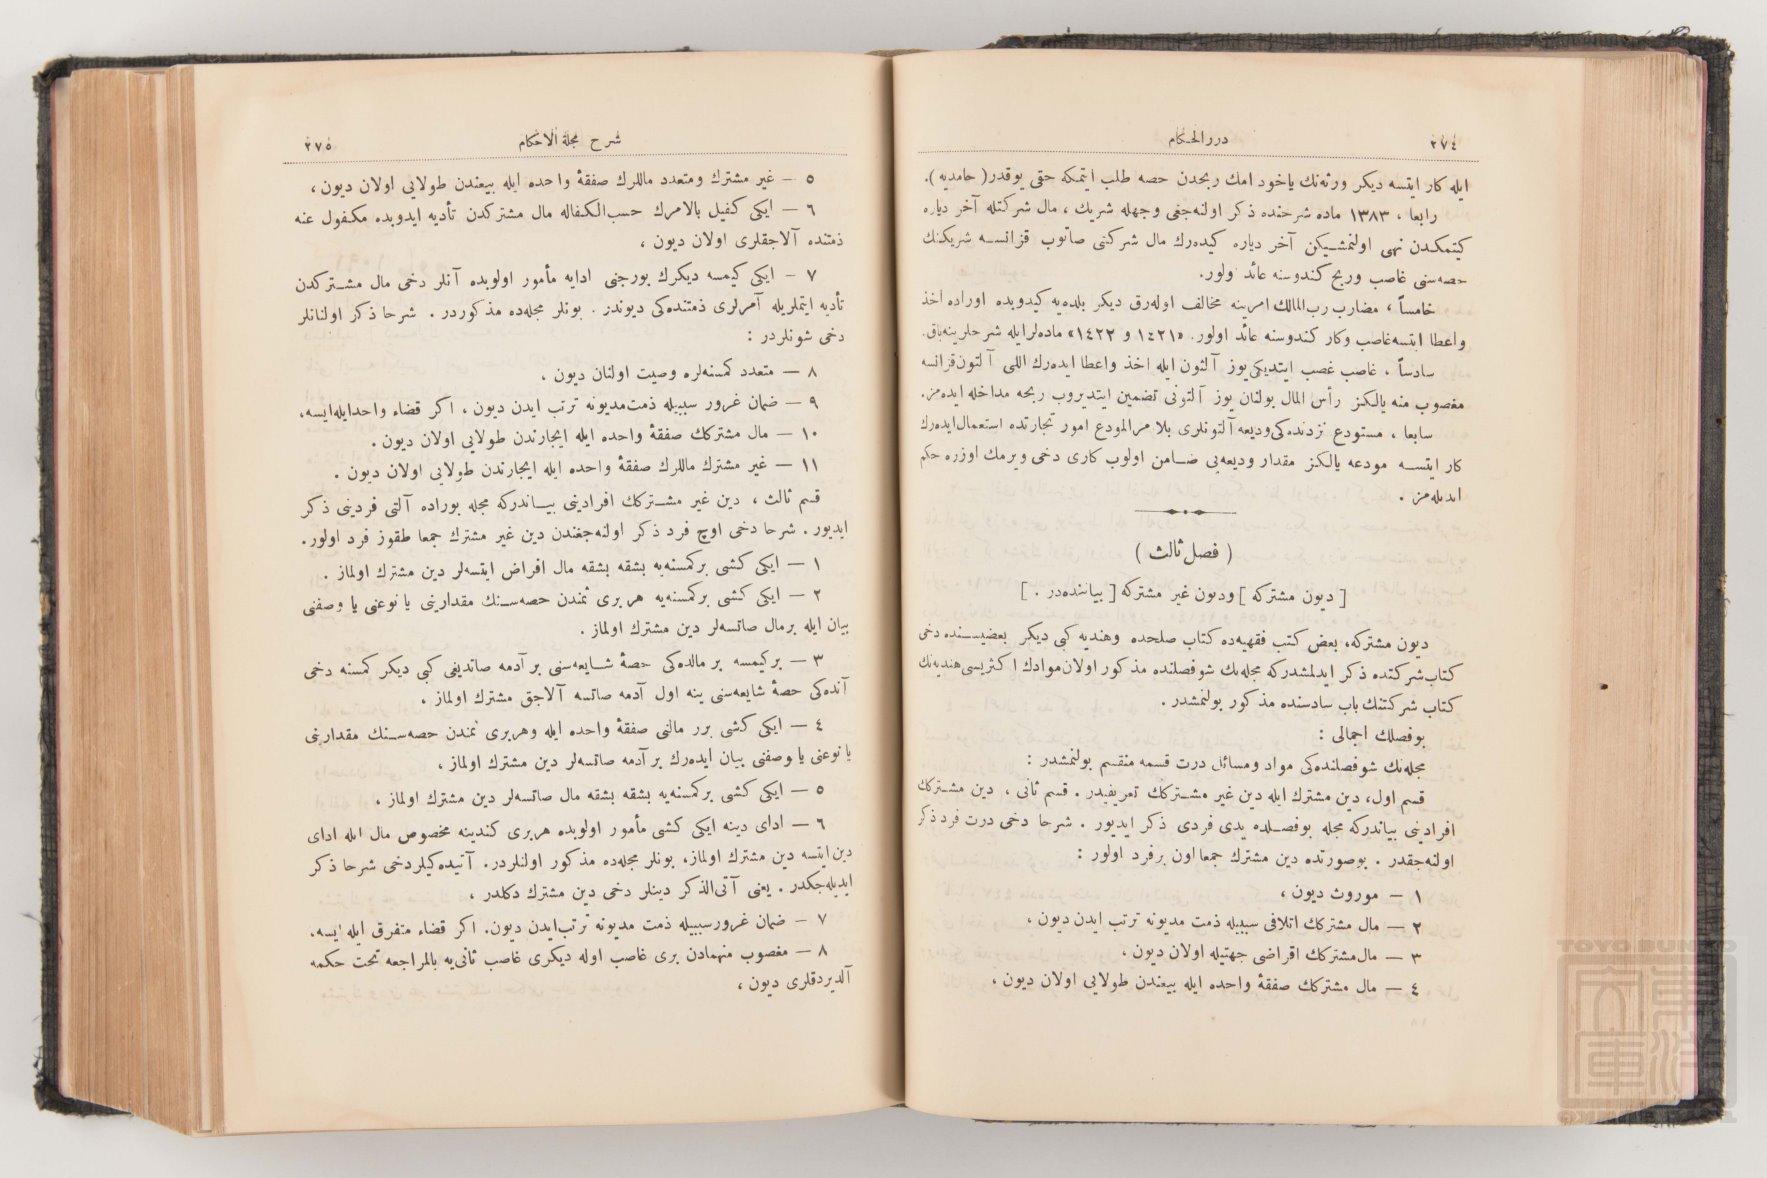 ٢٧٤
دررالحكام
ايله كار ايتسه ديكر ورثه‌نك ياخود امك ربحدن حصه طلب ايتمكه حقى يوقدر ( حامديه ).
رابعا ، ١٣٨٣ ماده شرحنده ذكر اولنه‌جغى وجهله شريك ، مال شركتله آخر دياره
كيتمكدن نهى اولنمشيكن آخر دياره كيده‌رك مال شركتى صاتوب قزانسه شريكنك
حصه‌سنى غاصب وربح كندوسنه عائد اولور.
خامساً ، مضارب رب‌المالك امرينه مخالف اوله‌رق ديكر بلده‌يه كيدوبده اوراده اخذ
واعطا ايتسه غاصب وكار كندوسنه عائد اولور. «١٤٢١ و ١٤٢٢» ماده‌لرايله شرحلرينه‌باق.
سادساً ، غاصب غصب ايتديكى يوز آلتون ايله اخذ واعطا ايده‌رك اللى آلتون قزانسه
مغصوب منه يالكز رأس المال بولنان يوز آلتونى تضمين ايتديروب ربحه مداخله ايده‌مز.
سابعا ، مستودع نزدنده‌كى وديعه آلتونلرى بلا امرالمودع امور تجارتده استعمال‌ايده‌رك
كار ايتسه مودعه يالكز مقدار وديعه‌يى ضامن اولوب كارى دخى ويرمك اوزره حكم
ايديله‌مز .
( فصل ثالث )
[ ديون مشتركه ] وديون غير مشتركه [ بياننده‌در . ]
ديون مشتركه، بعض كتب فقهيه‌ده كتاب صلحده وهنديه كبى ديكر بعضيسنده دخى
كتاب شركتده ذكر ايدلمشدركه مجله‌نك شوفصلنده مذكور اولان موادك اكثريسى هنديه‌نك
كتاب شركتنك باب سادسنده مذكور بولنمشدر .
بوفصلك اجمالى :
مجله‌نك شوفصلنده‌كى مواد ومسائل درت قسمه منقسم بولنمشدر :
قسم اول، دين مشترك ايله دين غير مشتركك تعريفيدر . قسم ثانى ، دين مشتركك
افرادينى بياندركه مجله بوفصلده يدى فردى ذكر ايديور . شرحا دخى درت فرد ذكر
اولنه‌جقدر . بوصورتده دين مشترك جمعا اون برفرد اولور :
١ — موروث ديون ،
٢ — مال مشتركك اتلافى سببيله ذمت مديونه ترتب ايدن ديون ،
٣ — مال مشتركك اقراضى جهتيله اولان ديون ،
٤ — مال مشتركك صفقهٔ واحده ايله بيعندن طولايى اولان ديون ،
شرح مجلة الاحكام
٢٧٥
٥ — غير مشترك ومتعدد ماللرك صفقهٔ واحده ايله بيعندن طولايى اولان ديون ،
٦ — ايكى كفيل بالامرك حسب‌الكفاله مال مشتركدن تأديه ايدوبده مكفول عنه
ذمتنده آلاجقلرى اولان ديون ،
٧ — ايكى كيمسه ديكرك بورجنى ادايه مأمور اولوبده آنلر دخى مال مشتركدن
تأديه ايتملريله آمرلرى ذمتنده‌كى ديوندر . بونلر مجله‌ده مذكوردر . شرحا ذكر اولنانلر
دخى شونلردر :
٨ — متعدد كمسنه‌لره وصيت اولنان ديون ،
٩ — ضمان غرور سببيله ذمت‌مديونه ترتب ايدن ديون ، اكر قضاء واحدايله‌ايسه،
١٠ — مال مشتركك صفقهٔ واحده ايله ايجارندن طولايى اولان ديون .
١١ — غير مشترك ماللرك صفقهٔ واحده ايله ايجارندن طولايى اولان ديون .
قسم ثالث ، دين غير مشتركك افرادينى بياندركه مجله بوراده آلتى فردينى ذكر
ايديور . شرحا دخى اوچ فرد ذكر اولنه‌جغندن دين غير مشترك جمعا طقوز فرد اولور.
١ — ايكى كشى بركمسنه‌يه بشقه بشقه مال اقراض ايتسه‌لر دين مشترك اولماز .
٢ — ايكى كشى بركمسنه‌يه هر برى ثمندن حصه‌سنك مقدارينى يا نوعنى يا وصفنى
بيان ايله برمال صاتسه‌لر دين مشترك اولماز .
٣ — بركيمسه بر مالده‌كى حصهٔ شايعه‌سنى بر آدمه صاتديغى كبى ديكر كمسنه دخى
آنده‌كى حصهٔ شايعه‌سنى ينه اول آدمه صاتسه آلاجق مشترك اولماز .
٤ — ايكى كشى برر مالنى صفقهٔ واحده ايله وهربرى ثمندن حصه‌سنك مقدارينى
يا نوعنى يا وصفنى بيان ايده‌رك بر آدمه صاتسه‌لر دين مشترك اولماز ،
٥ — ايكى كشى بركمسنه‌يه بشقه بشقه مال صاتسه‌لر دين مشترك اولماز ،
٦ — اداى دينه ايكى كشى مأمور اولوبده هربرى كندينه مخصوص مال ايله اداى
دين ايتسه دين مشترك اولماز، بونلر مجله‌ده مذكور اولنلردر. آتيده‌كيلردخى شرحا ذكر
ايديله‌جكدر . يعنى آتى‌الذكر دينلر دخى دين مشترك دكلدر ،
٧ — ضمان غرورسببيله ذمت مديونه ترتب‌ايدن ديون. اكر قضاء متفرق ايله ايسه.
٨ — مغصوب منهمادن برى غاصب اوله ديكرى غاصب ثانى‌يه بالمراجعه تحت حكمه
آلديردقلرى ديون ،
TOYO BUNKO